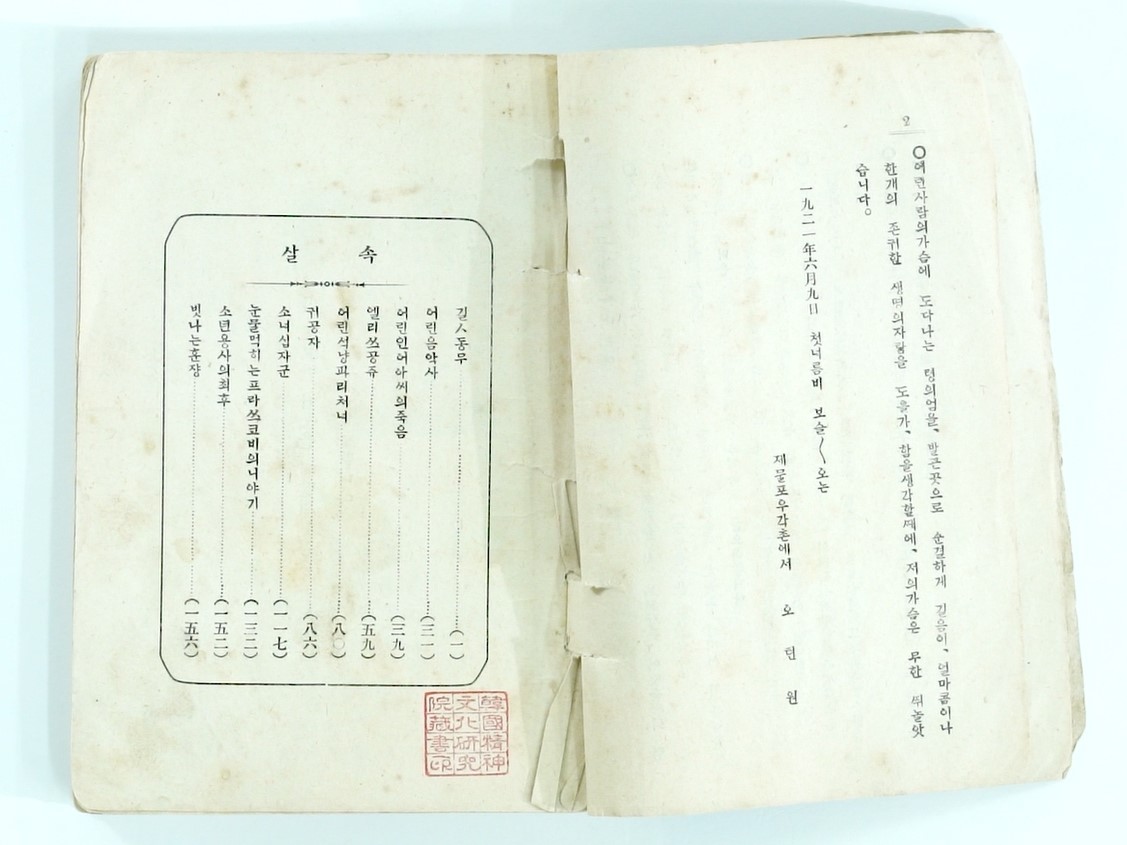 2
○어린사람의가슴에 도다나는 령의엄을、 발근곳으로 순결하게 길음이、 얼마콤이나
한개의 존귀한 생명의자람을 도을가、 함을생각할째에、 저의가슴은 무한 쒸놀앗
습니다。
一九二一年六月九日 첫녀름비 보슬〳〵오는
제물포우각촌에서 오 턴 원
속 살
길ㅅ동무 (一)
어린음악사 (三一)
어린인어아씨의죽음 (三九)
엘리쓰공쥬 (五九)
어린석냥파리처녀 (八〇)
귀공자 (八六)
소녀십자군 (一一七)
눈물먹히는프라쓰코비의니야기 (一三二)
소년용사의최후 (一五二)
빗나는훈쟝 (一五六)
韓國精神
文化研究
院藏書印